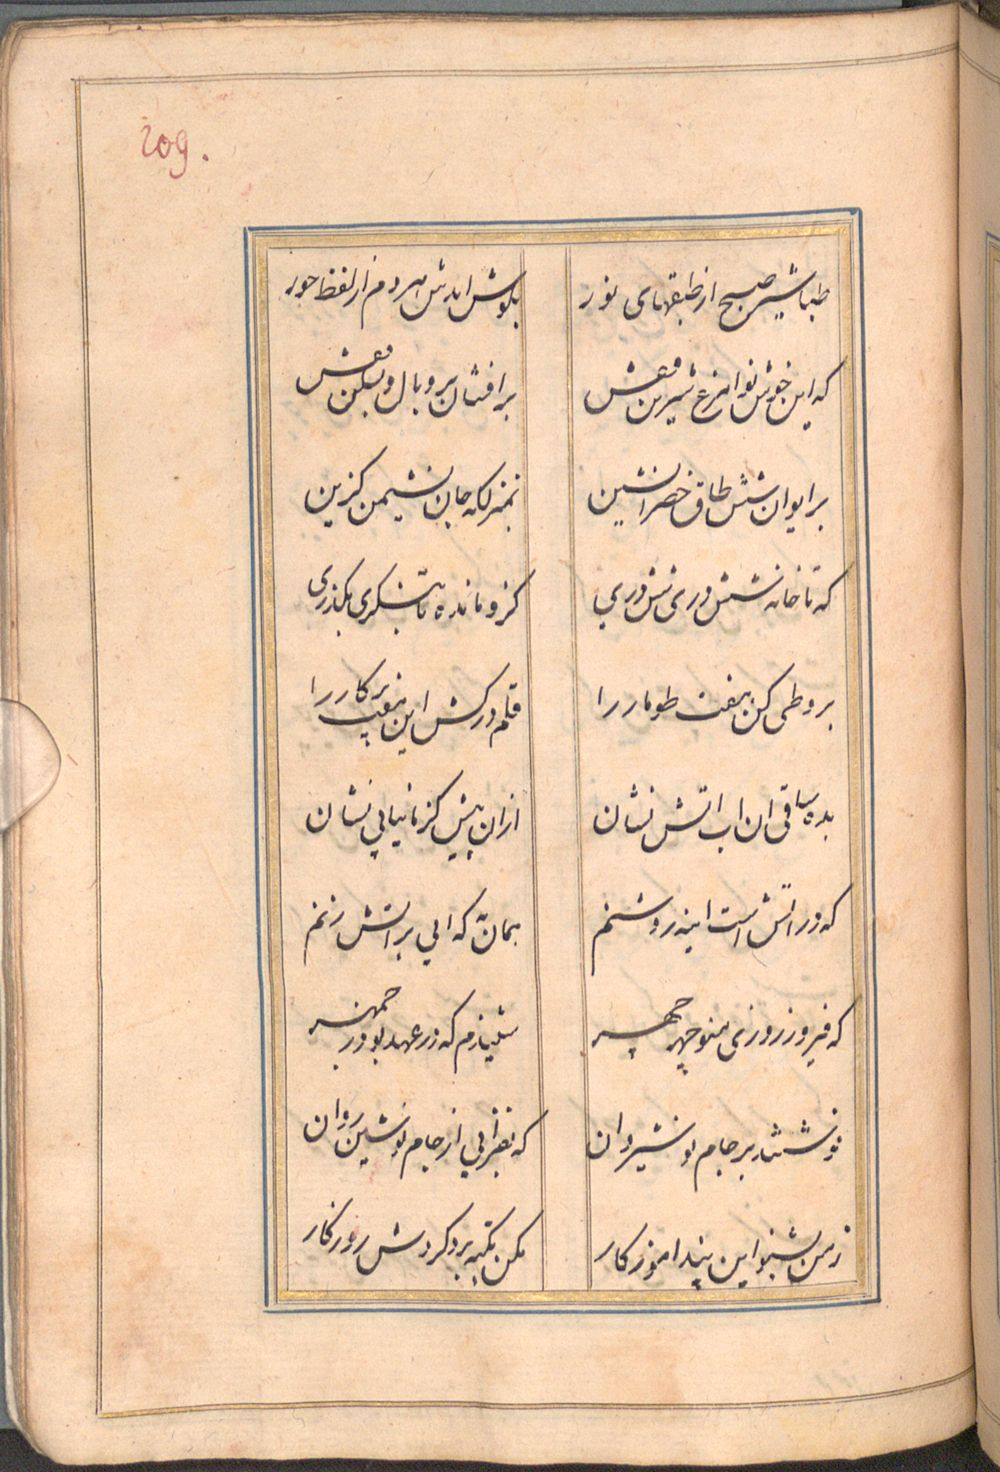 209.
طباشیر صبح از طبقهای نور
بگوش ایدش هر دم از لفظ حور
که این خوش نوا مرغ شیرین نفس
برافشان پر و بال و بشکن قفس
بر ایوان شش طاق خضرا نشین
بمنزلکه جان نشیمن کزین
که تا خانه شش دری شش دری
کزو مانده تا ننکری بکذری
برو طی کن هفت طومار را
قلم درکش این پرکار را
بده ساقی ان اب اتش نشان
ازان پیش کز ما نیابی نشان
که در اتش است اینه روشنم
همان به که ابی بر اتش زنم
که فیروز روزی منوچهر چهر
شنیدم که در عهد بوذرجمهر
نوشتند بر جام نوشیروان
که بفزایی از جام نوشین روان
ز من بشنو این پند اموزکار
مکن تکیه بر کردش روزکار